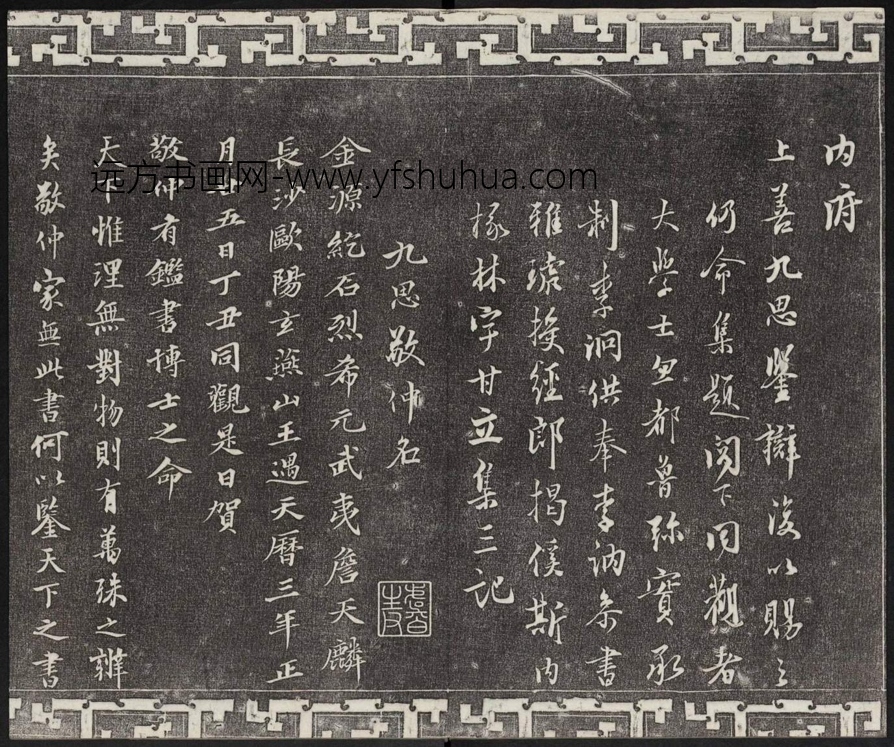 内府
上善九思鑒辯復以賜之
何命集題閣下同觀者
大學士忽都魯弥實承
制李泂供奉李訥參書
雅琥授經郎揭傒斯内
掾林宇甘立集三記
九思敬仲名
金源紇石烈希元武夷詹天麟
長沙歐陽玄燕山王遇天曆三年正
月廿五日丁丑同觀是日賀
敬仲有鑑書博士之命
天下惟理無對物則有萬殊之辨
矣敬仲家無此書何以鑒天下之書
远方书画网-www.yfshuhua.com